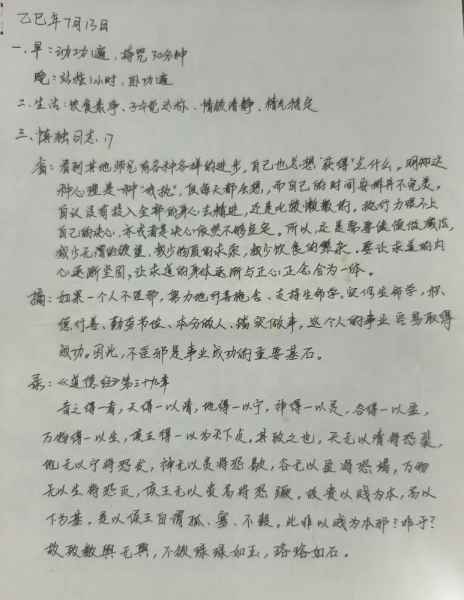 乙巳年7月13日
一、早：动功1遍、持咒30分钟
晚：站桩1小时、卧功1遍
二、生活：饮食素净、子午觉必称、情绪清静、精气稳定
三、慎独日志:17
省：看到其他师兄有各种各样的进步，自己也总想“获得”点什么。明知这
种心理是一种“我执”，但每天都会想，而自己的时间安排并不完美，
自认没有投入全部的身心去精进，还是比较懒散的，执行力跟不上
自己的决心，亦或者是决心依然不够坚定。所以，还是需要慢慢做减法，
减少无谓的欲望，减少物质的求索，减少饮食的繁杂。要让求道的内
心逐渐坚固，让求道的身体逐渐与正心正念合为一体。
摘：如果一个人不淫邪，努力地行善施舍、支持生命学、实修生命学，积
德行善、勤劳节俭、本分做人、踏实做事，这个人的事业容易取得
成功。因此，不淫邪是事业成功的重要基石。
录：《道德经》第三十九章
昔之得一者，天得一以清，地得一以宁，神得一以灵，谷得一以盈，
万物得一以生，侯王得一以为天下贞。其致之也，天无以清将恐裂，
地无以宁将恐发，神无以灵将恐歇，谷无以盈将恐竭，万物
无以生将恐灭，侯王无以贵高将恐蹶。故贵以贱为本，高以
下为基。是以侯王自谓孤、寡、不穀。此非以贱为本邪？非乎？
故致数舆无舆，不欲琭琭如玉，珞珞如石。